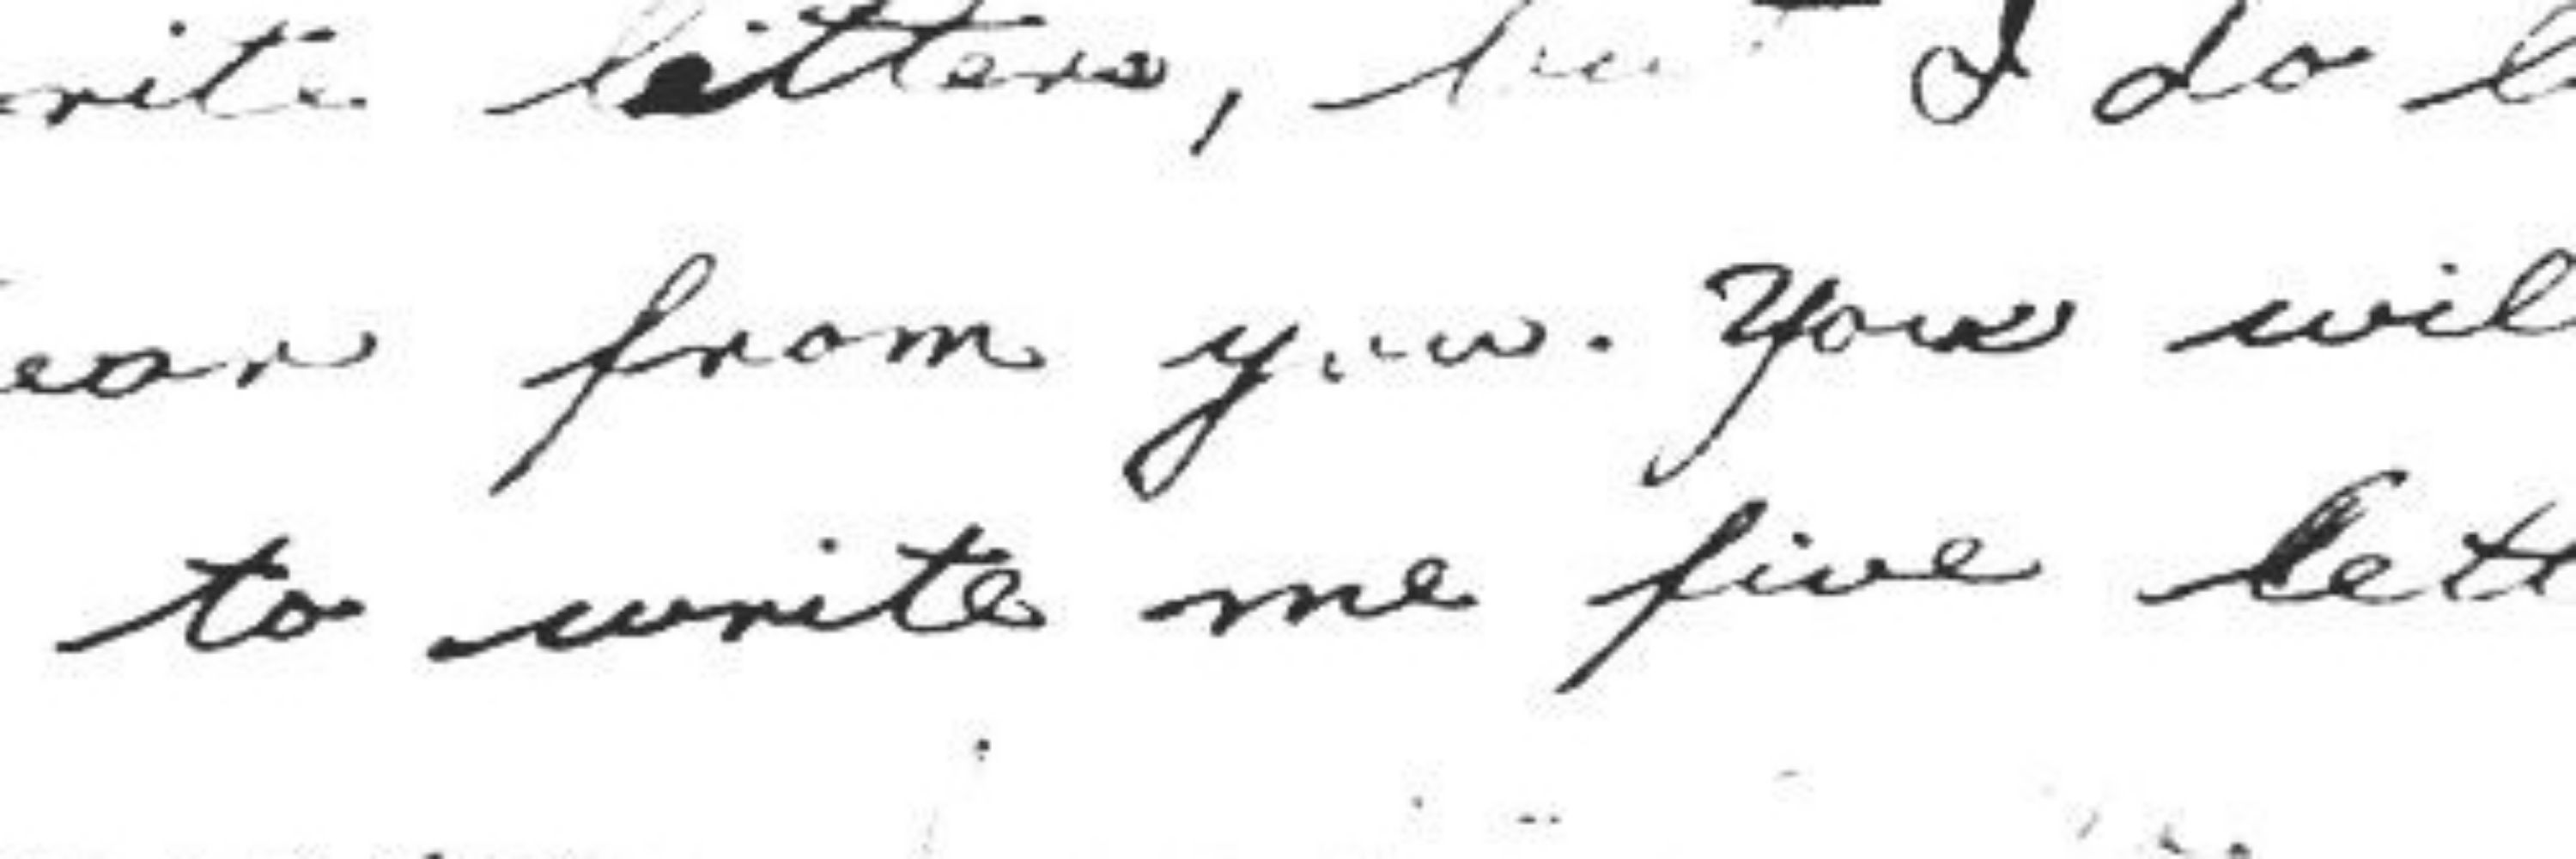 write letters, but I do l
ear from you. You wil
to write me five lett